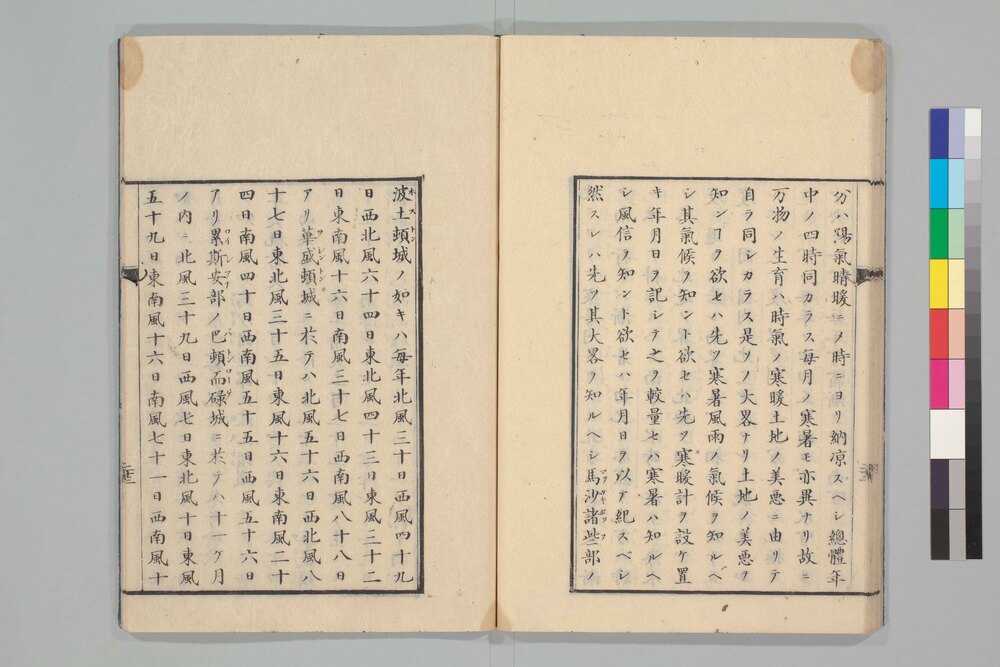 分ハ陽氣晴暖ニメ時ニヨリ納凉スヘシ總體年
中ノ四時同カラス毎月ノ寒暑モ亦異ナリ故ニ
万物ノ生育ハ時氣ノ寒暖土地ノ美悪ニ由リテ
自ラ同シカラス是ソノ大畧ナリ土地ノ美悪ヲ
知ンヿヲ欲セハ先ツ寒暑風雨ノ氣候ヲ知ルヘ
シ其氣候ヲ知ント欲セハ先ツ寒暖計ヲ設ケ置
キ年月日ヲ記シテ之ヲ較量セハ寒暑ハ知ルヘ
シ風信ヲ知ント欲セハ年月日ヲ以テ紀スベシ
然スレハ先ツ其大畧ヲ知ルヘシ馬沙諸些部ノ
波士頓城ノ如キハ毎年北風三十日西風四十九
日西北風六十四日東北風四十三日東風三十二
日東南風十六日南風三十七日西南風八十八日
アリ華盛頓城ニ於テハ北風五十六日西北風八
十七日東北風三十五日東風十六日東南風二十
四日南風四十日西南風五十五日西風五十六日
アリ累斯安部ノ巴頓屚碌城ニ於テハ十一ケ月
ノ内ニ北風三十九日西風七日東北風十日東風
五十九日東南風十六日南風七十一日西南風十